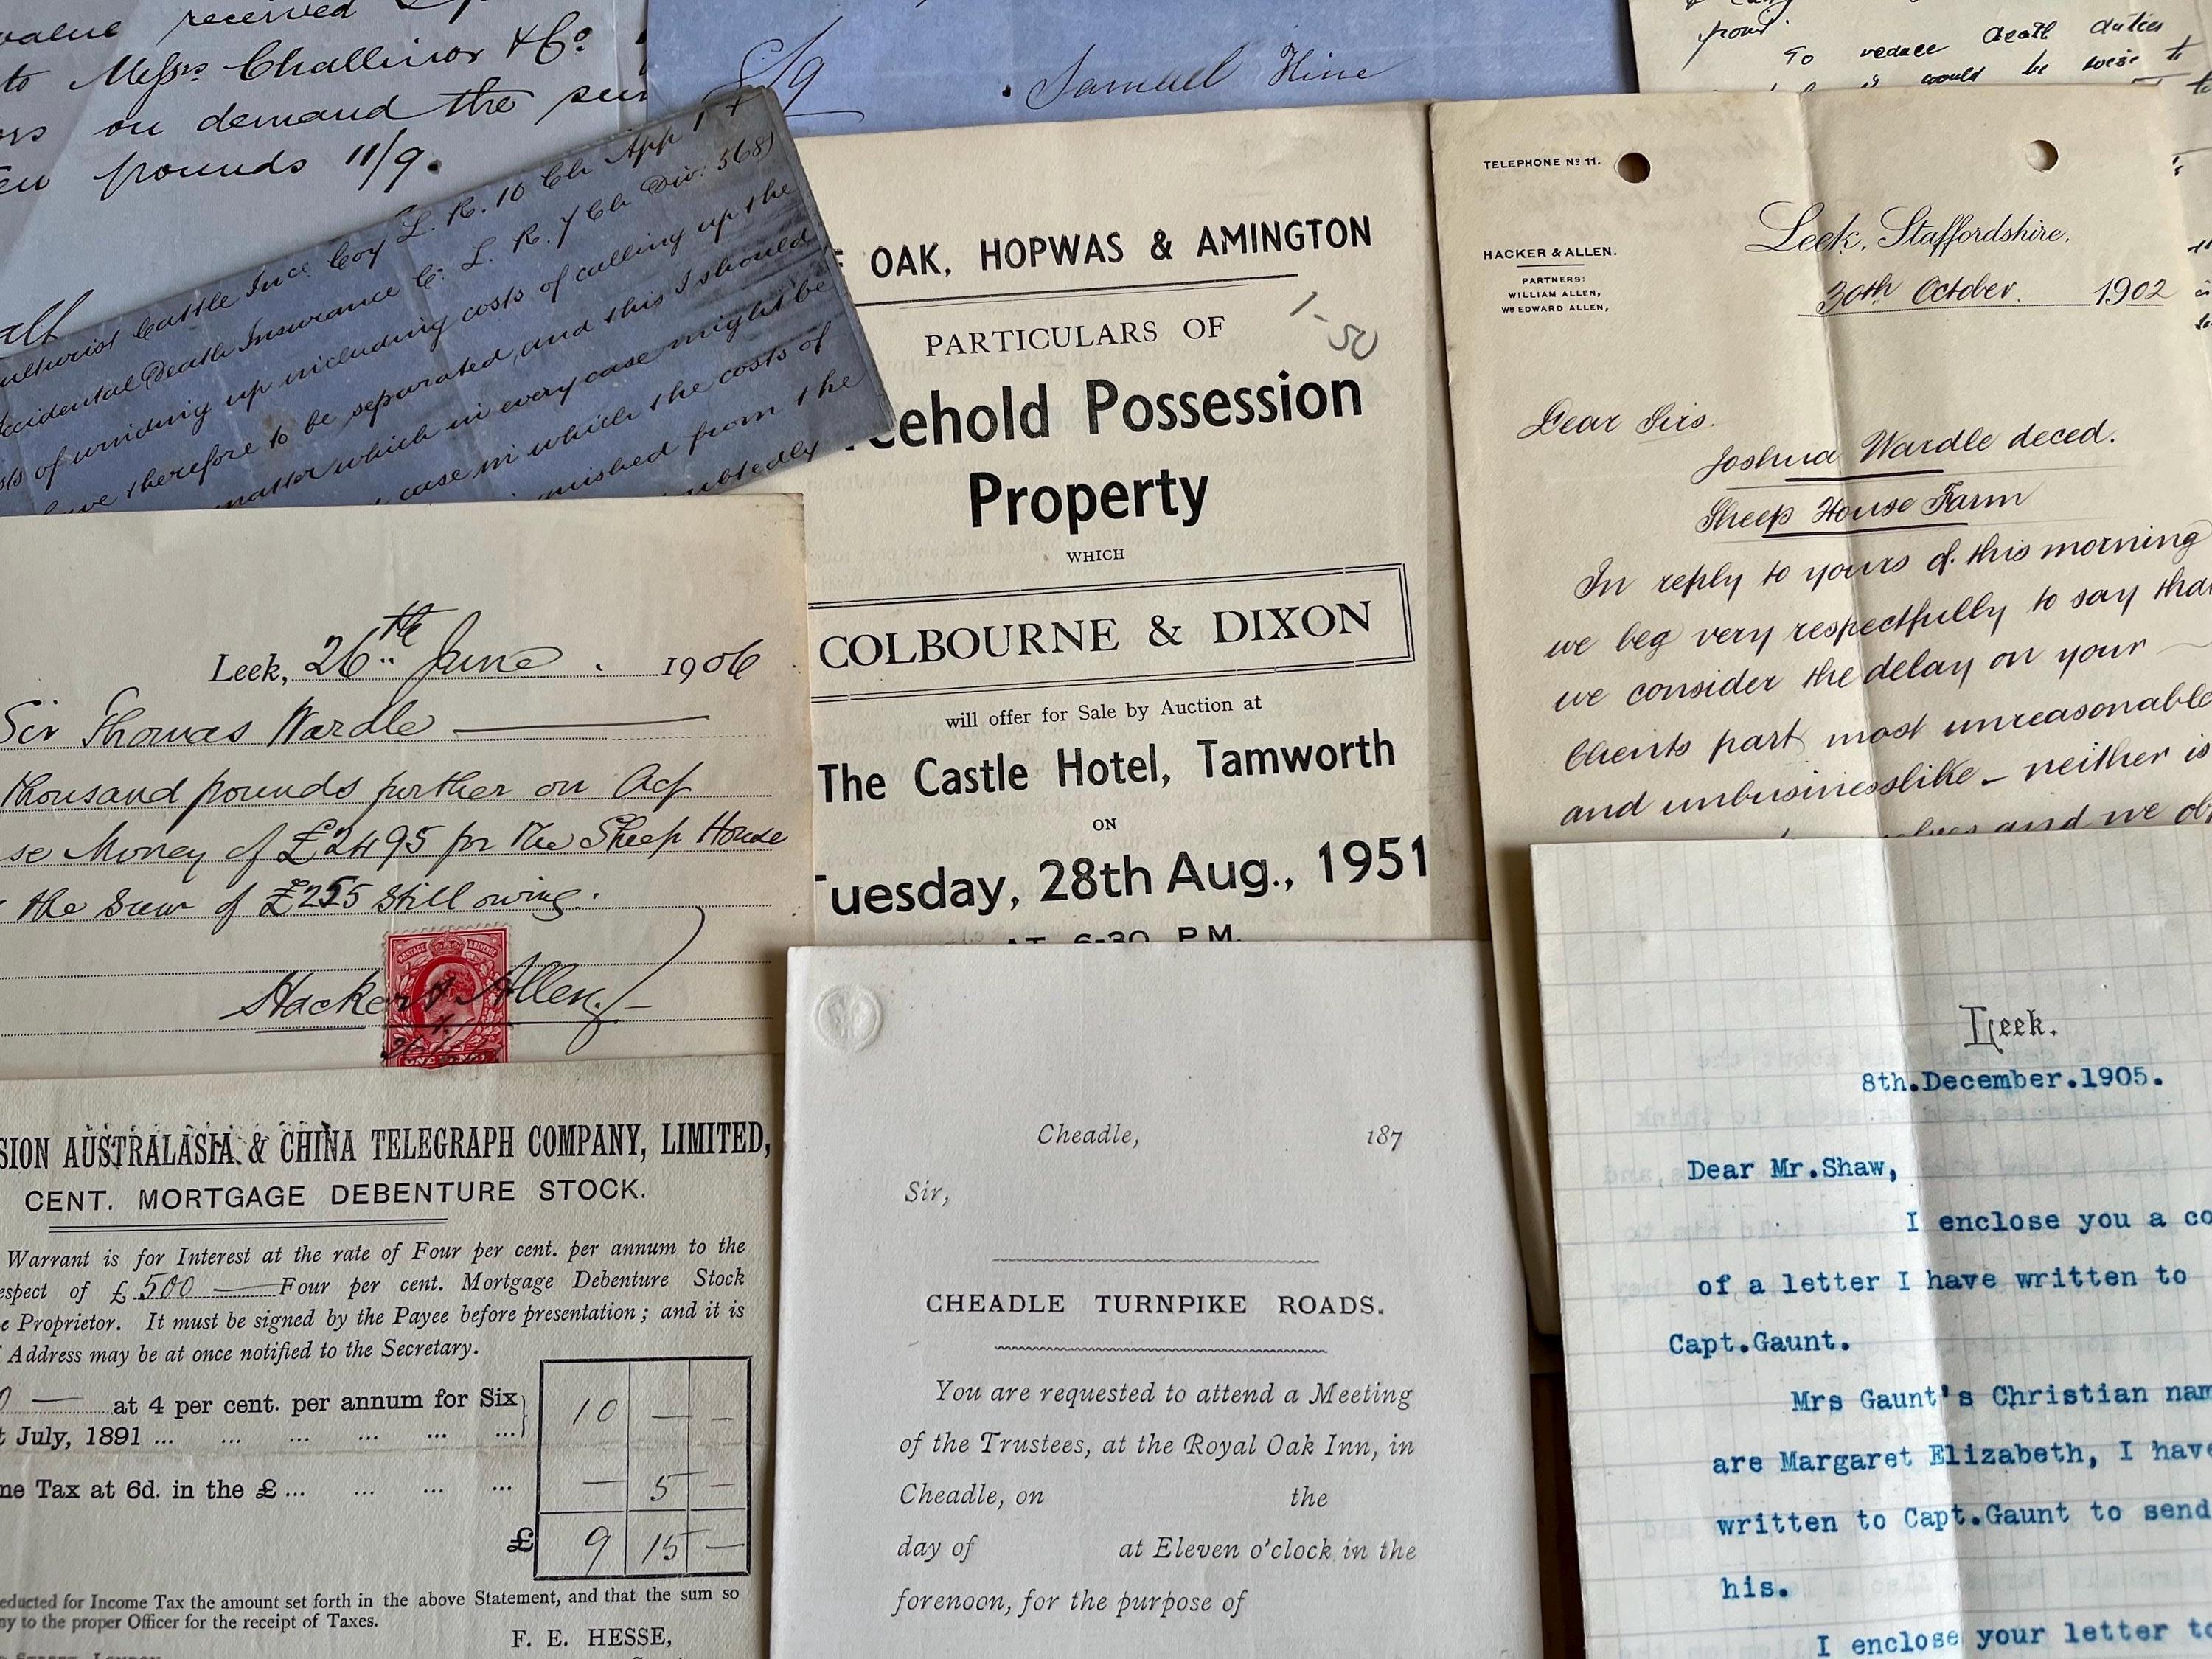 value received
to Messrs Challinor & Co
on demand the sum
pounds 11/9.
Samuel Hine
To reduce death duties
would be wise to
Cattle Insce Coy L. R. 10 Ch App 1
Accidental Death Insurance Co L. R. 7 Ch Div: 568)
of winding up including costs of calling up the
have therefore to be separated, and this I should
matter which in every case might be
case in which the costs of
from the
OAK, HOPWAS & AMINGTON
PARTICULARS OF
1-50
eehold Possession
Property
WHICH
COLBOURNE & DIXON
will offer for Sale by Auction at
The Castle Hotel, Tamworth
ON
Tuesday, 28th Aug., 1951
AT 6-30 P.M.
TELEPHONE No 11.
HACKER & ALLEN.
PARTNERS:
WILLIAM ALLEN,
WM EDWARD ALLEN,
Leek, Staffordshire.
30th October. 1902
Dear Sirs.
Joshua Wardle deced.
Sheep House Farm
In reply to yours of this morning
we beg very respectfully to say that
we consider the delay on your
Clients part most unreasonable
and unbusinesslike – neither is
and we
Leek, 26th June . 1906
Sir Thomas Wardle
thousand pounds further on Acc
se Money of £2495 for the Sheep House
the sum of £255 still owing.
Hacker & Allen
POSTAGE & REVENUE
ONE PENNY
SION AUSTRALASIA & CHINA TELEGRAPH COMPANY, LIMITED,
CENT. MORTGAGE DEBENTURE STOCK.
Warrant is for Interest at the rate of Four per cent. per annum to the
espect of £ 500 Four per cent. Mortgage Debenture Stock
e Proprietor. It must be signed by the Payee before presentation; and it is
Address may be at once notified to the Secretary.
at 4 per cent. per annum for Six
t July, 1891 ... ... ... ... ... ... 10 — —
me Tax at 6d. in the £ ... ... ... ... — 5 —
£ 9 15 —
educted for Income Tax the amount set forth in the above Statement, and that the sum so
ny to the proper Officer for the receipt of Taxes.
F. E. HESSE,
Cheadle, 187
Sir,
CHEADLE TURNPIKE ROADS.
You are requested to attend a Meeting
of the Trustees, at the Royal Oak Inn, in
Cheadle, on the
day of at Eleven o'clock in the
forenoon, for the purpose of
Leek.
8th.December.1905.
Dear Mr.Shaw,
I enclose you a co
of a letter I have written to
Capt.Gaunt.
Mrs Gaunt's Christian nam
are Margaret Elizabeth, I have
written to Capt.Gaunt to send
his.
I enclose your letter to